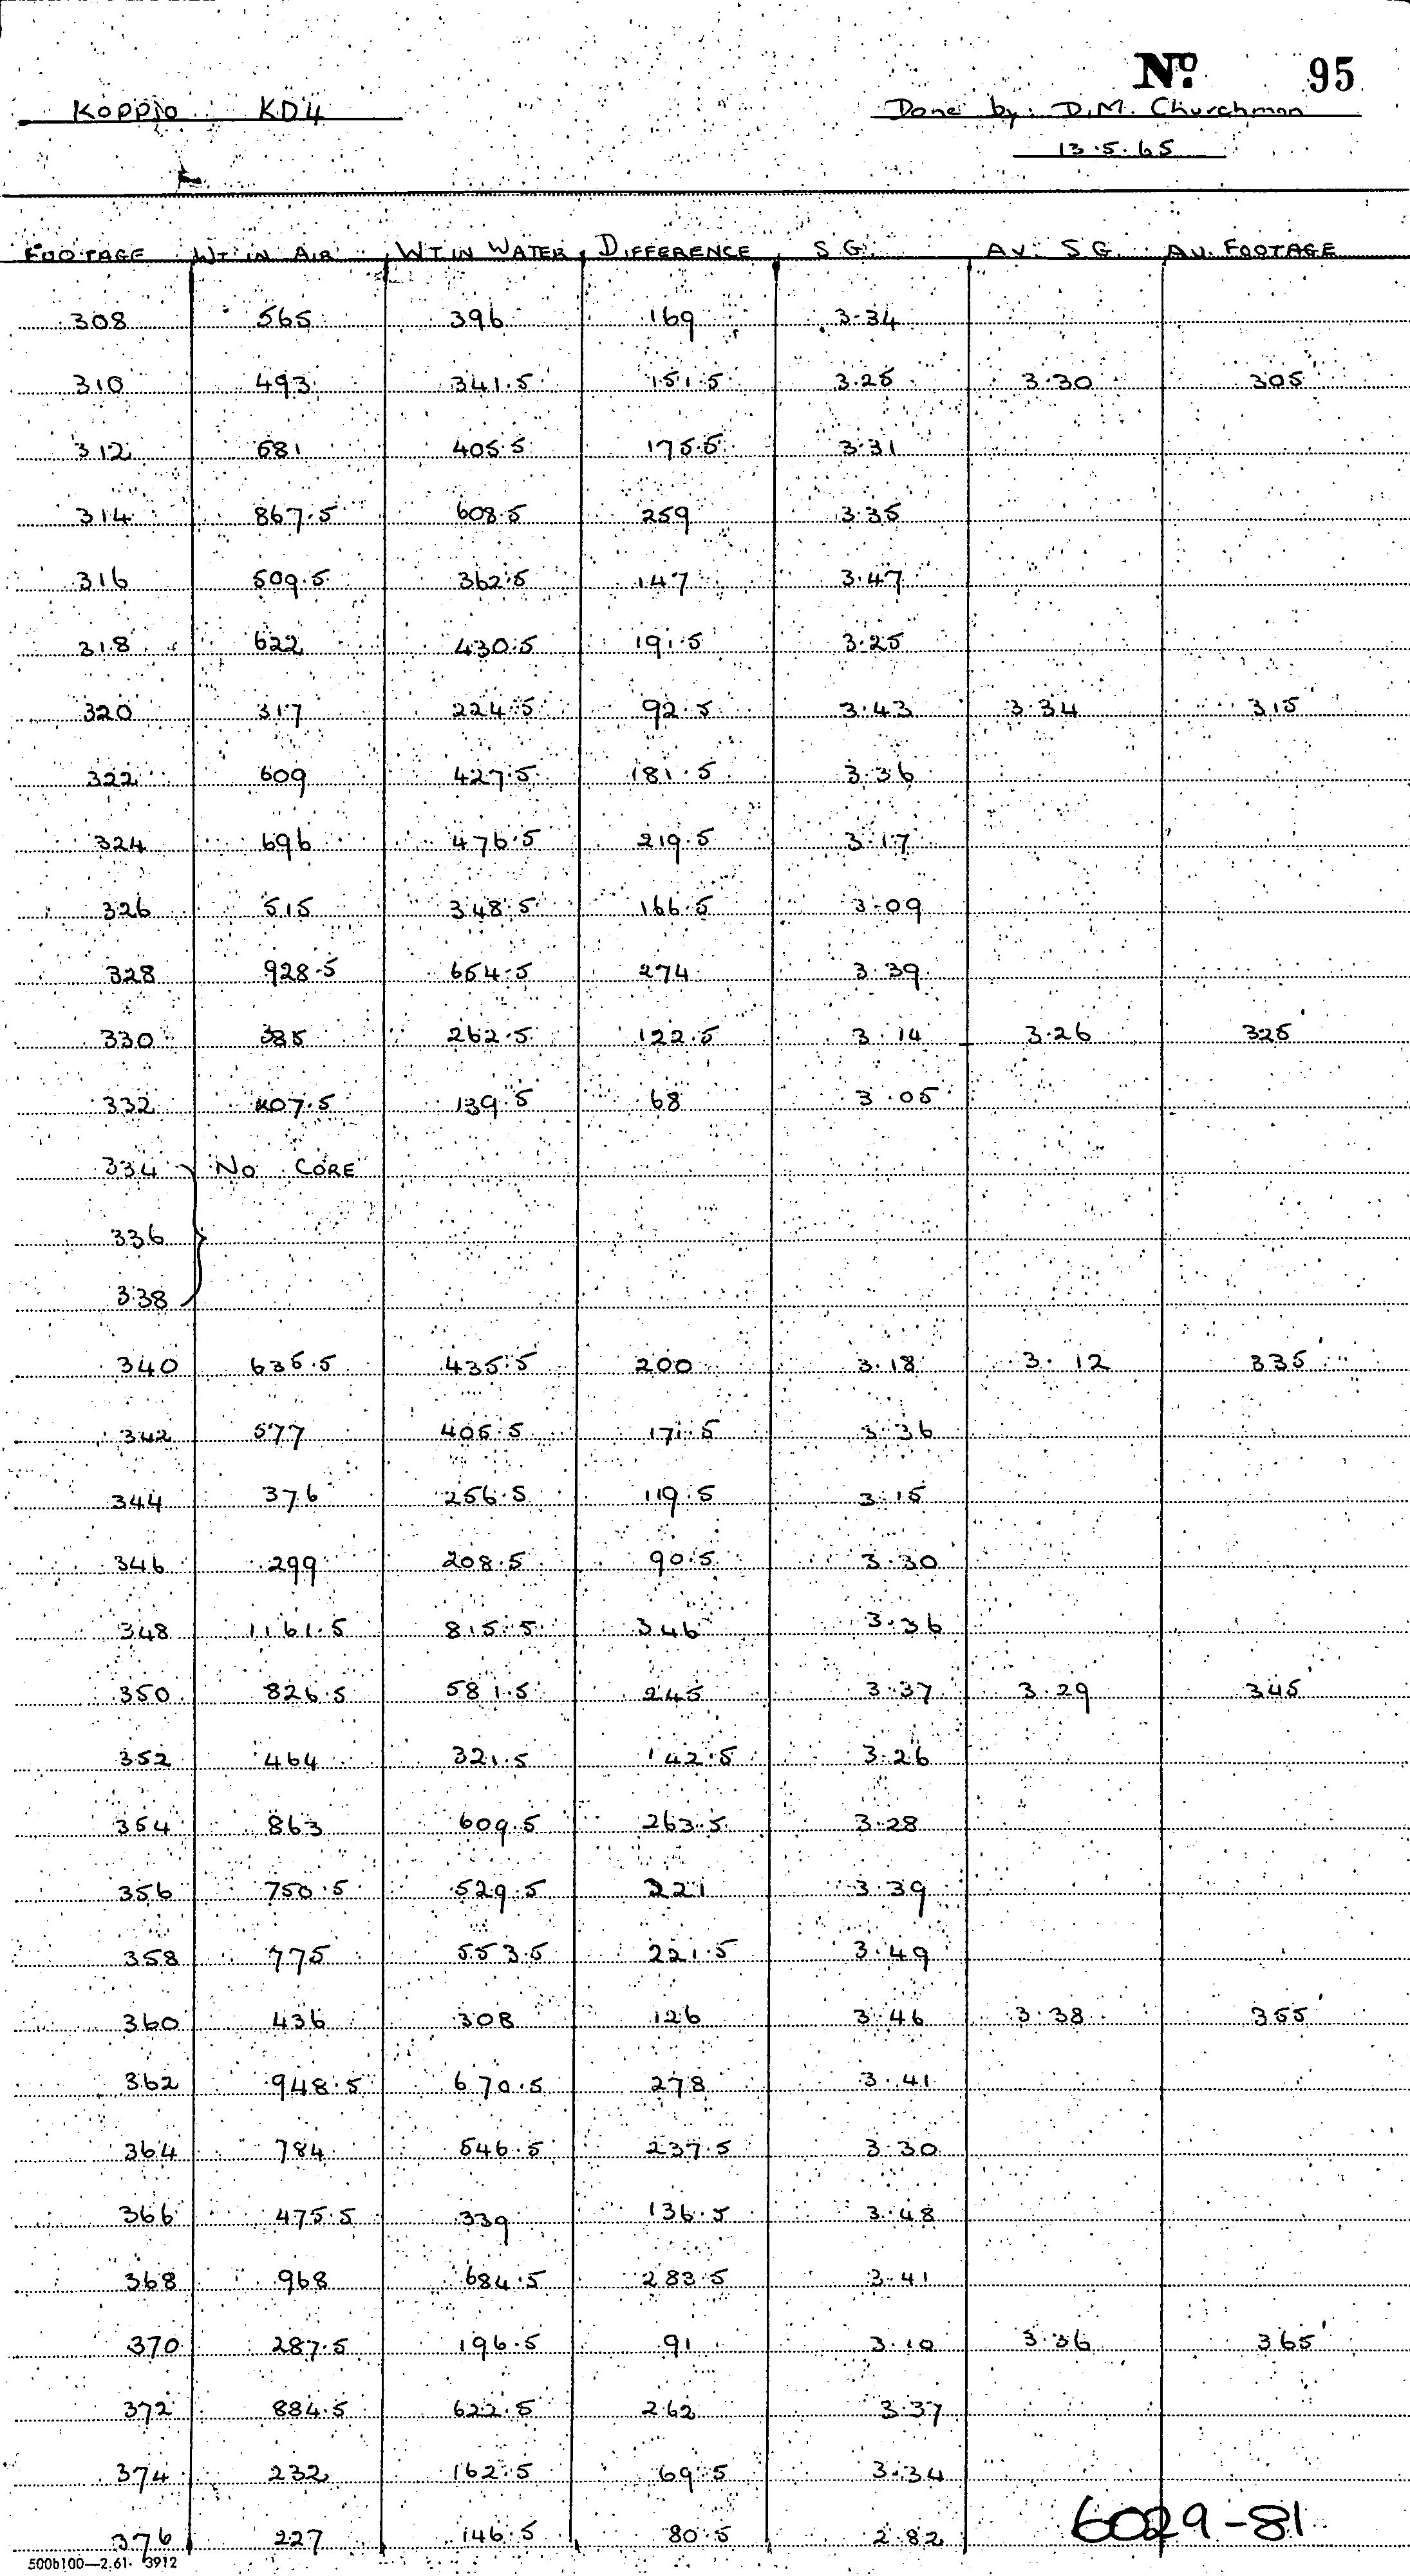 No. 95
Koppio KD4 Done by: D.M. Churchman
13.5.65
FOOTAGE WT IN AIR WT IN WATER DIFFERENCE S G. AV. S G. AV. FOOTAGE
308 565 396 169 3.34
310 493 341.5 151.5 3.25 3.30 305'
312 581 405.5 175.5 3.31
314 867.5 608.5 259 3.35
316 509.5 362.5 147 3.47
318 622 430.5 191.5 3.25
320 317 224.5 92.5 3.43 3.34 315'
322 609 427.5 181.5 3.36
324 696 476.5 219.5 3.17
326 515 348.5 166.5 3.09
328 928.5 654.5 274 3.39
330 385 262.5 122.5 3.14 3.26 325'
332 207.5 139.5 68 3.05
334 NO CORE
336
338
340 635.5 435.5 200 3.18 3.12 335'
342 577 405.5 171.5 3.36
344 376 256.5 119.5 3.15
346 299 208.5 90.5 3.30
348 1161.5 815.5 346 3.36
350 826.5 581.5 245 3.37 3.29 345'
352 464 321.5 142.5 3.26
354 863 609.5 263.5 3.28
356 750.5 529.5 221 3.39
358 775 553.5 221.5 3.49
360 436 308 126 3.46 3.38 355'
362 948.5 670.5 278 3.41
364 784 546.5 237.5 3.30
366 475.5 339 136.5 3.48
368 968 684.5 283.5 3.41
370 287.5 196.5 91 3.10 3.36 365'
372 884.5 622.5 262 3.37
374 232 162.5 69.5 3.34
376 227 146.5 80.5 2.82
6029-81
500b100—2.61 3912